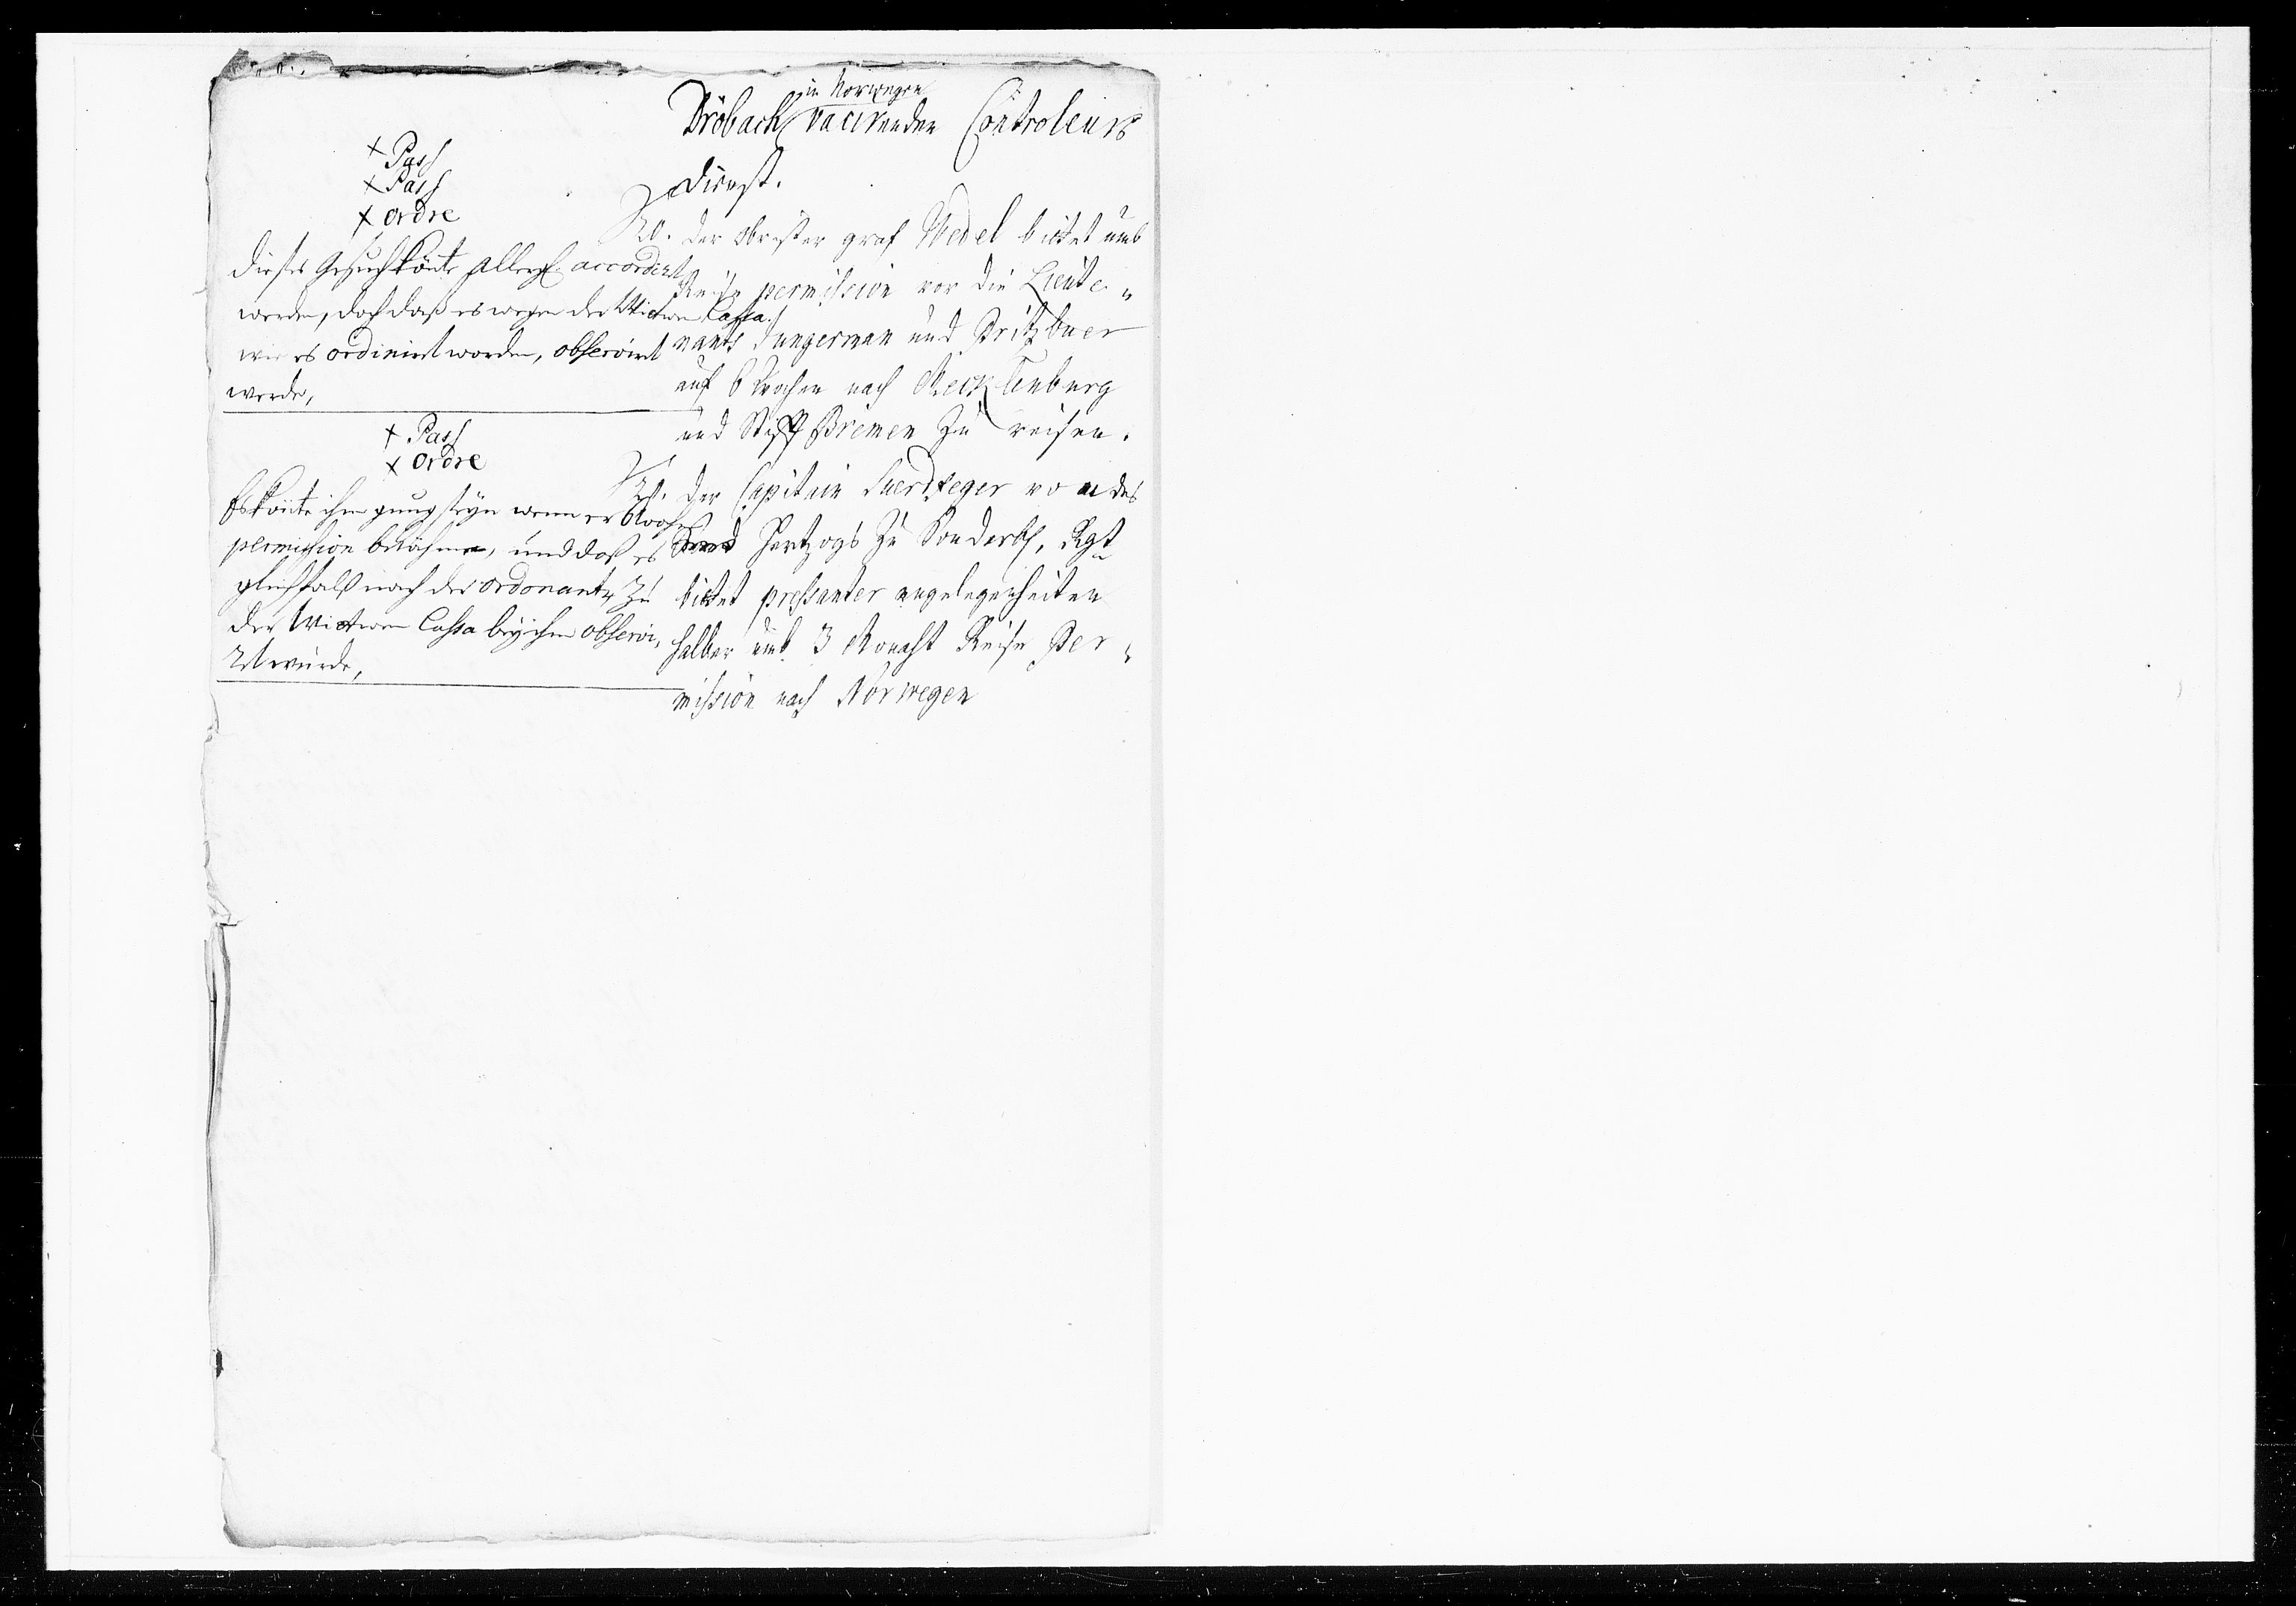 in Norwegen
Dröbach vacirenden Controleurs
Dienst.
20. Der Obrister graf Wedel bittet umb
Reise permission vor die Lieute-
nants Jungerman und Pritzbuer
auf 6 Wochen nach Mecklenburg
und Stifft Bremen zu reisen.
21. Der Capitain von des
Hertzogs zu Sonderb. Rgt
bittet pressanter angelegenheiten
halber umb 3 Monaht Reise Per-
mission nach Norwegen
+ Pass
+ Pass
+ ordre
Dieses Gesuch könte allergn. accordirt
werden, doch daß es wegen der Witwen Cassa
wie es ordinirt worden, observirt
werde,
+ Pass
+ ordre
Es könte ihm genug seyn wenn er 6 Wochen
permission bekähme, und daß es
gleichfalß nach der ordonantz zu
der Witwen Cassa bey ihm observi-
ret würde,